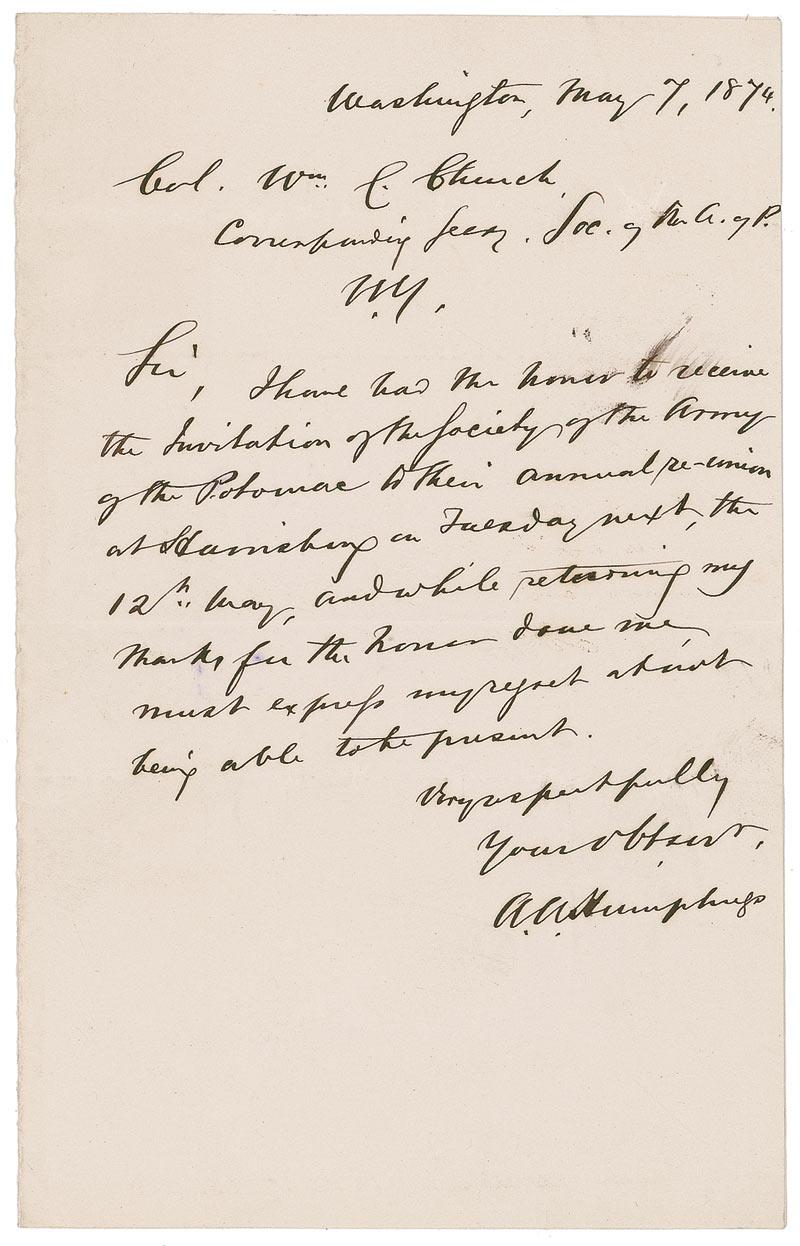 Washington, May 7, 1874.
Col. Wm. C. Church,
Corresponding Secy. Soc. of the A. of P.
N.Y.
Sir, I have had the honor to receive
the Invitation of the Society of the Army
of the Potomac to their annual re-union
at Harrisburg on Tuesday next, the
12th. May, and while returning my
thanks for the honor done me,
must express my regret at not
being able to be present.
Very respectfully
Your Obt servt,
A.A. Humphreys